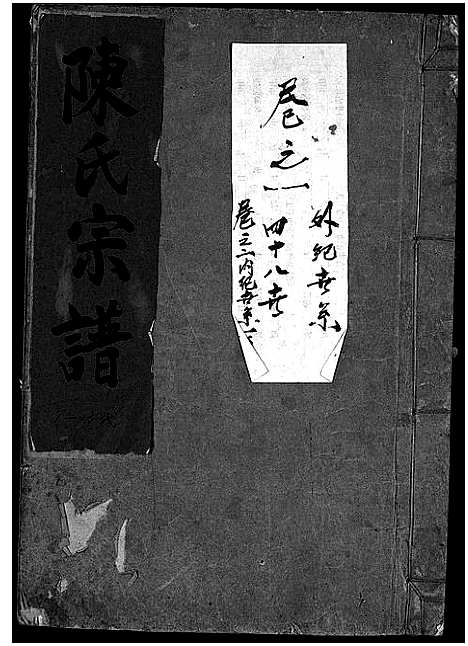 外纪世系
卷之一 四十八世
卷之二内纪世系
陳氏宗譜